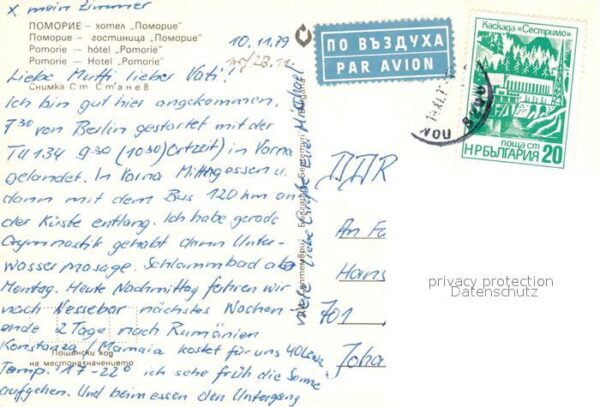 x mein Zimmer
ПОМОРИЕ – хотел „Поморие"
Поморие – гостиница „Поморие"
Pomorie – hôtel „Pomorié"
Pomorie – Hotel „Pomorie"
Снимка Ст. Станев
10.11.79
Liebe Mutti lieber Vati!
Ich bin gut hier angekommen.
7³⁰ von Berlin gestartet mit der
TU 134 9³⁰ (10³⁰) Ortzeit) in Varna
gelandet. In Varna Mittagessen u.
dann mit dem Bus 120 km an
der Küste entlang. Ich habe gerade
Gymnastik gehabt dann Unter-
wasser massage. Schlammbad ab
Montag. Heute Nachmittag fahren wir
nach Nessebar nächstes Wochen-
ende 2 Tage nach Rumänien
Konstanza / Mamaia kostet für uns 40 Lewa
Temp. 17-22° ich sehe früh die Sonne
aufgehen. Und beim essen den Untergang
Пощенски код
на местоназначението
viele Liebe Grüße Euer Michael
ПО ВЪЗДУХА
PAR AVION
Каскада „Сестримо"
поща ст
НР БЪЛГАРИЯ 20
DDR
An Fa
Hans
701
Joha
privacy protection
Datenschutz